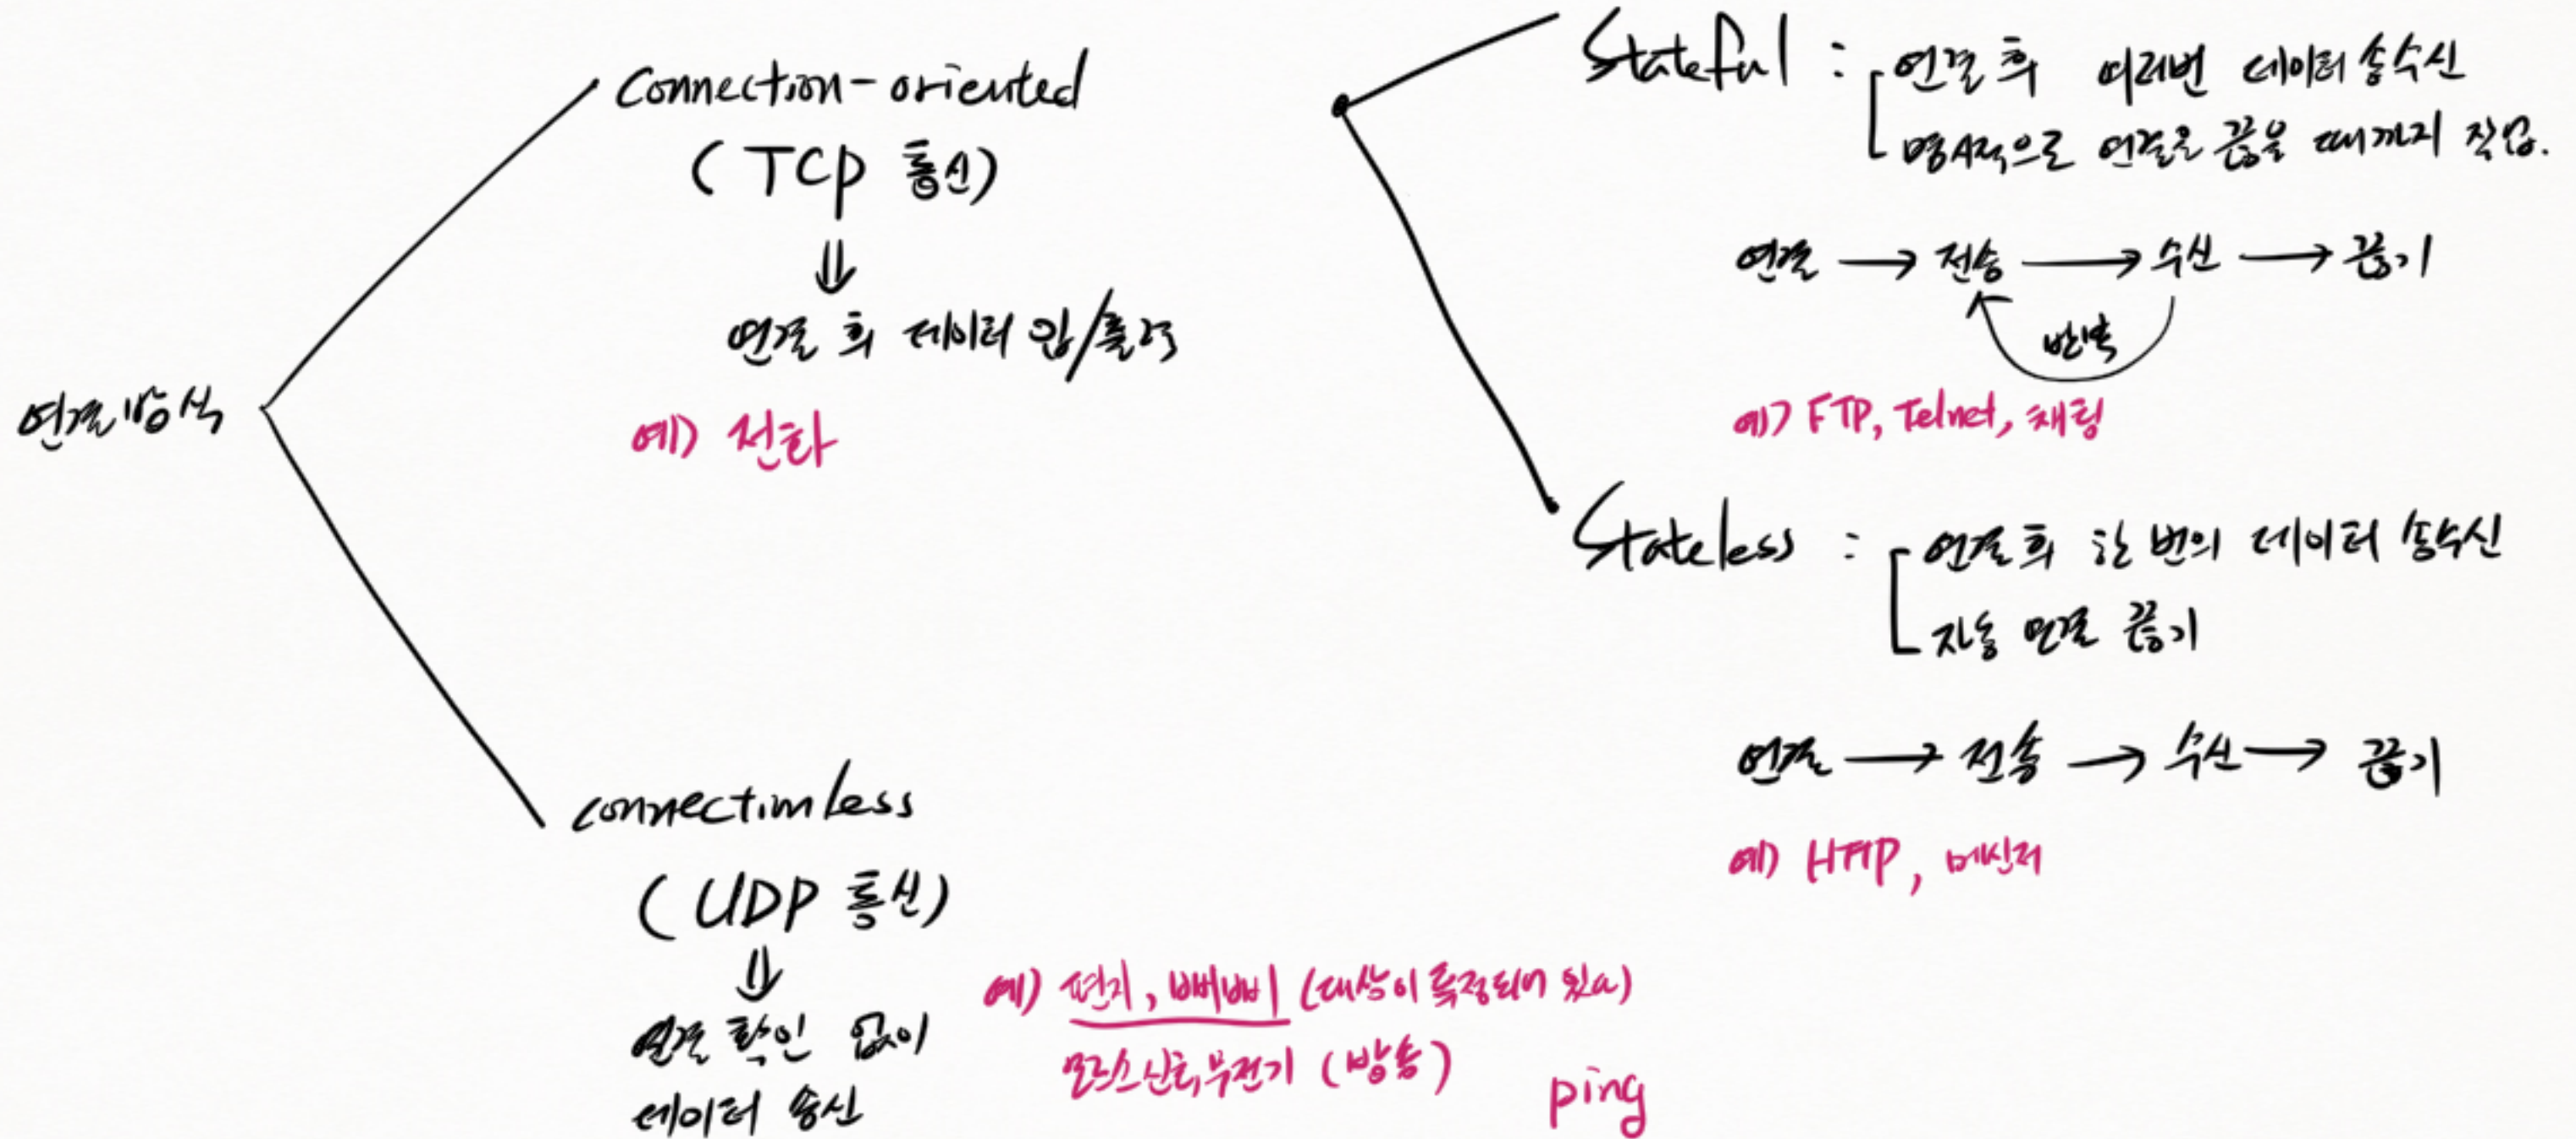 연결방식
Connection-oriented
(TCP 통신)
⇓
연결 후 데이터 입/출력
예) 전화
connectionless
(UDP 통신)
⇓
연결 확인 없이
데이터 송신
예) 편지, 삐삐 (대상이 특정되어 있다)
모르스 신호, 무전기 (방송)
ping
Stateful : 연결 후 여러번 데이터 송수신
명시적으로 연결을 끊을 때까지 작업.
연결 → 전송 → 수신 → 끊기
반복
예) FTP, Telnet, 채팅
Stateless : 연결 후 한 번의 데이터 송수신
자동 연결 끊기
연결 → 전송 → 수신 → 끊기
예) HTTP, 메신저